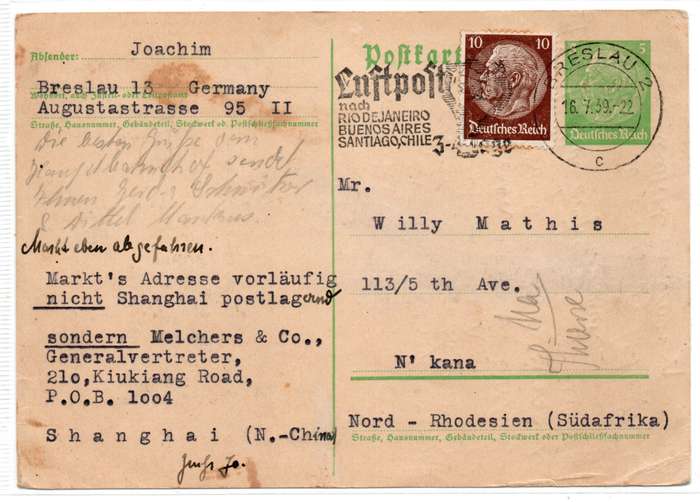 Absender: Joachim
Breslau 13 Germany
Wohnort, auch Zustell- oder Leitpostamt
Augustastrasse 95 II
Straße, Hausnummer, Gebäudeteil, Stockwerk od. Postschließfachnummer
Die besten Grüße vom
sendet
Ihnen
Markt eben abgefahren.
Markt's Adresse vorläufig
nicht Shanghai postlagernd
sondern Melchers & Co.,
Generalvertreter,
210,Kiukiang Road,
P.O.B. 1004
Shanghai (N.-China)
Postkarte
Luftpost
nach
RIO DE JANEIRO
BUENOS AIRES
SANTIAGO, CHILE
10 10
Deutsches Reich
BRESLAU 2
16.7.39.-22
c
5
Deutsches Reich
Mr.
Willy Mathis
113/5 th Ave.
N'kana
Nord - Rhodesien (Südafrika)
Straße, Hausnummer, Gebäudeteil, Stockwerk oder Postschließfachnummer